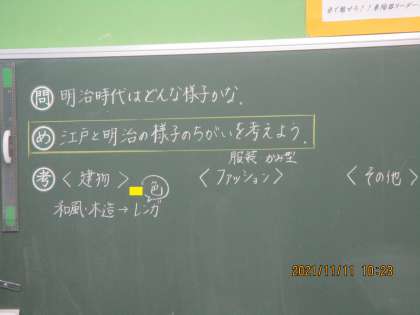 問 明治時代はどんな様子かな.
め 江戸と明治の様子のちがいを考えよう.
服装 かみ型
考 〈建物〉 〈ファッション〉 〈その他〉
色
和風・木造→レンガ
2021/11/11 10:23